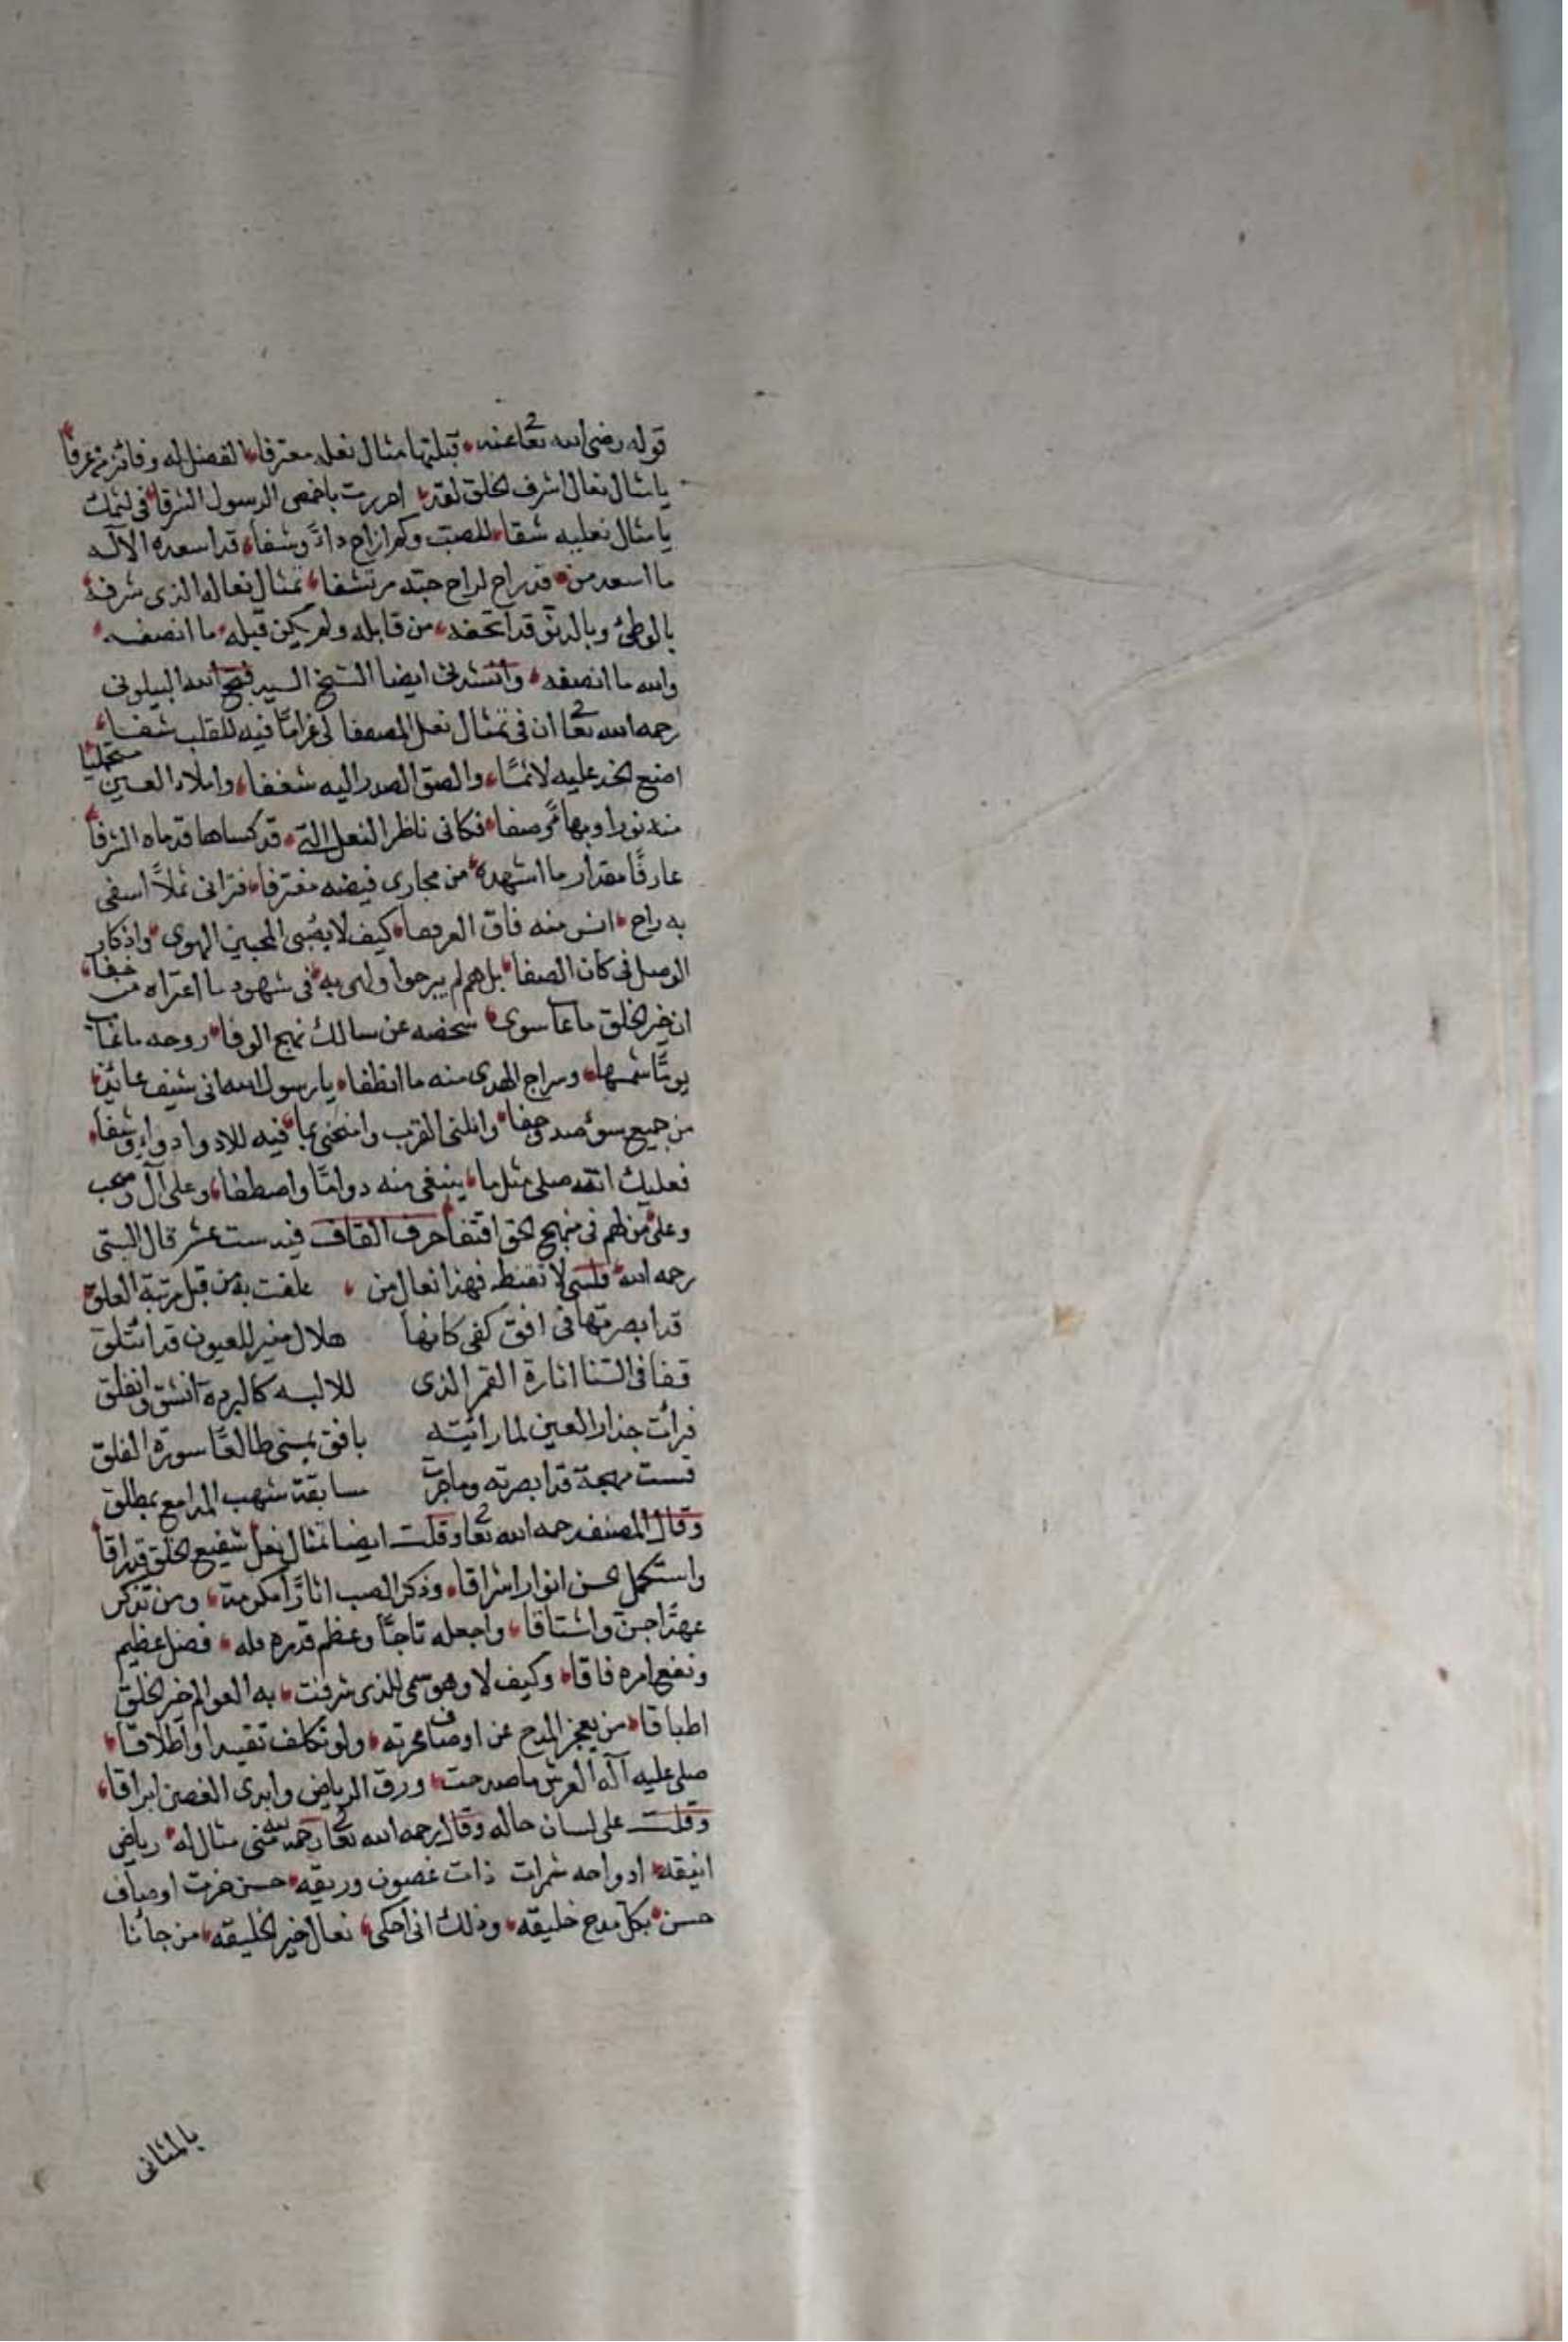 قوله رضى الله تعا عنه قبلتها مثال نعله معترفا الفضل له وفائز من عرفا
يا مثال نعال اشرف الخلق لقد احررت باخمص الرسول الشرفا فى لثمك
يا مثال نعليه شفا للصب وكم ازاح داءً وشفا قد اسعده الآله
ما اسعد من قد راح لراح حبه مرتشفا تمثال نعاله الذى شرفه
بالوطئ وبالدنو قد اتحفه من قابله ولم يكن قبله ما انصفه
والله ما انصفه وانشدنى ايضا الشيخ السيد فتح الله البيلونى
رحمه الله تعا ان فى تمثال نعل المصطفا لى غرامًا فيه للقلب شفا
اضع الخد عليه لاثمًا والصق الصدر اليه شغفا واملاء العين مستجليا
منه نورا وبهاءً وصفا فكانى ناظر النعل التى قد كساها قدماه الشرفا
عارفًا مقدار ما اشهده من مجارى فيضه مغترفا فترانى ثملاً اسقى
به راح انس منه فاق القرقفا كيف لا يصبى المحبين الهوى واذكار
الوصل فى كان الصفا بل هم لم يبرحوا ولهى به فى شهود ما اعتراه من خفا
ان خير الخلق ما غاب سوى شخصه عن سالك نهج الوفا روحه ما غاب
يومًا شمسها وسراج الهدى منه ما انطفا يا رسول الله انى شيق عائذ
من جميع سوء صد وجفا وانلنى القرب وامنحنى بما فيه للادوا دواء وشفا
فعليك الله صلى مثل ما ينبغى منه دوامًا واصطفا وعلى آل وصحب
وعلى من لهم فى منهج الحق اقتفا حرف القاف فيه ست عشر قال البستى
رحمه الله لا تقنط فهذا نعال من علقت به من قبل مرتبة العلق
قد ابصرتها فى افق كفى كانها هلال منير للعيون قد ائتلق
قفا فى السنا اثارة القمر الذى للابسه كالبردة انشق وانفلق
فرأت حذار العين لما رائيته بافق يمينى طالعًا سورة الفلق
قست مهجة قد ابصرته وما جرت سابقة شهب المدامع بمطلق
وقال المصنف رحمه الله تعا وقلت ايضا تمثال نعل شفيع الخلق قد راقا
واستكمل حسن انوار اشراقا وذكر الصب اثارًا مكرمة ومن تذكر
عهدًا حن واشتاقا واجعله تاجًا وعظم قدره فله فضل عظيم
ونفع امره فاقا وكيف لا وهو سمى للذى شرفت به العوالم خير الخلق
اطباقا من يعجز المدح عن اوصاف ولو تكلف تقييدا واطلاقا
صلى عليه آله العرش ما صدحت ورق الرياض وابدى الغصن ابراقا
وقلت على لسان حاله وقال رحمه الله تعا منى مثال له رياض
انيقه ادواحه ثمرات ذات غصون وريقه حسن حزت اوصاف
حسن بكل مدح خليقه وذلك انى احكى نعال خير الخليقه من جائنا
بالمثانى